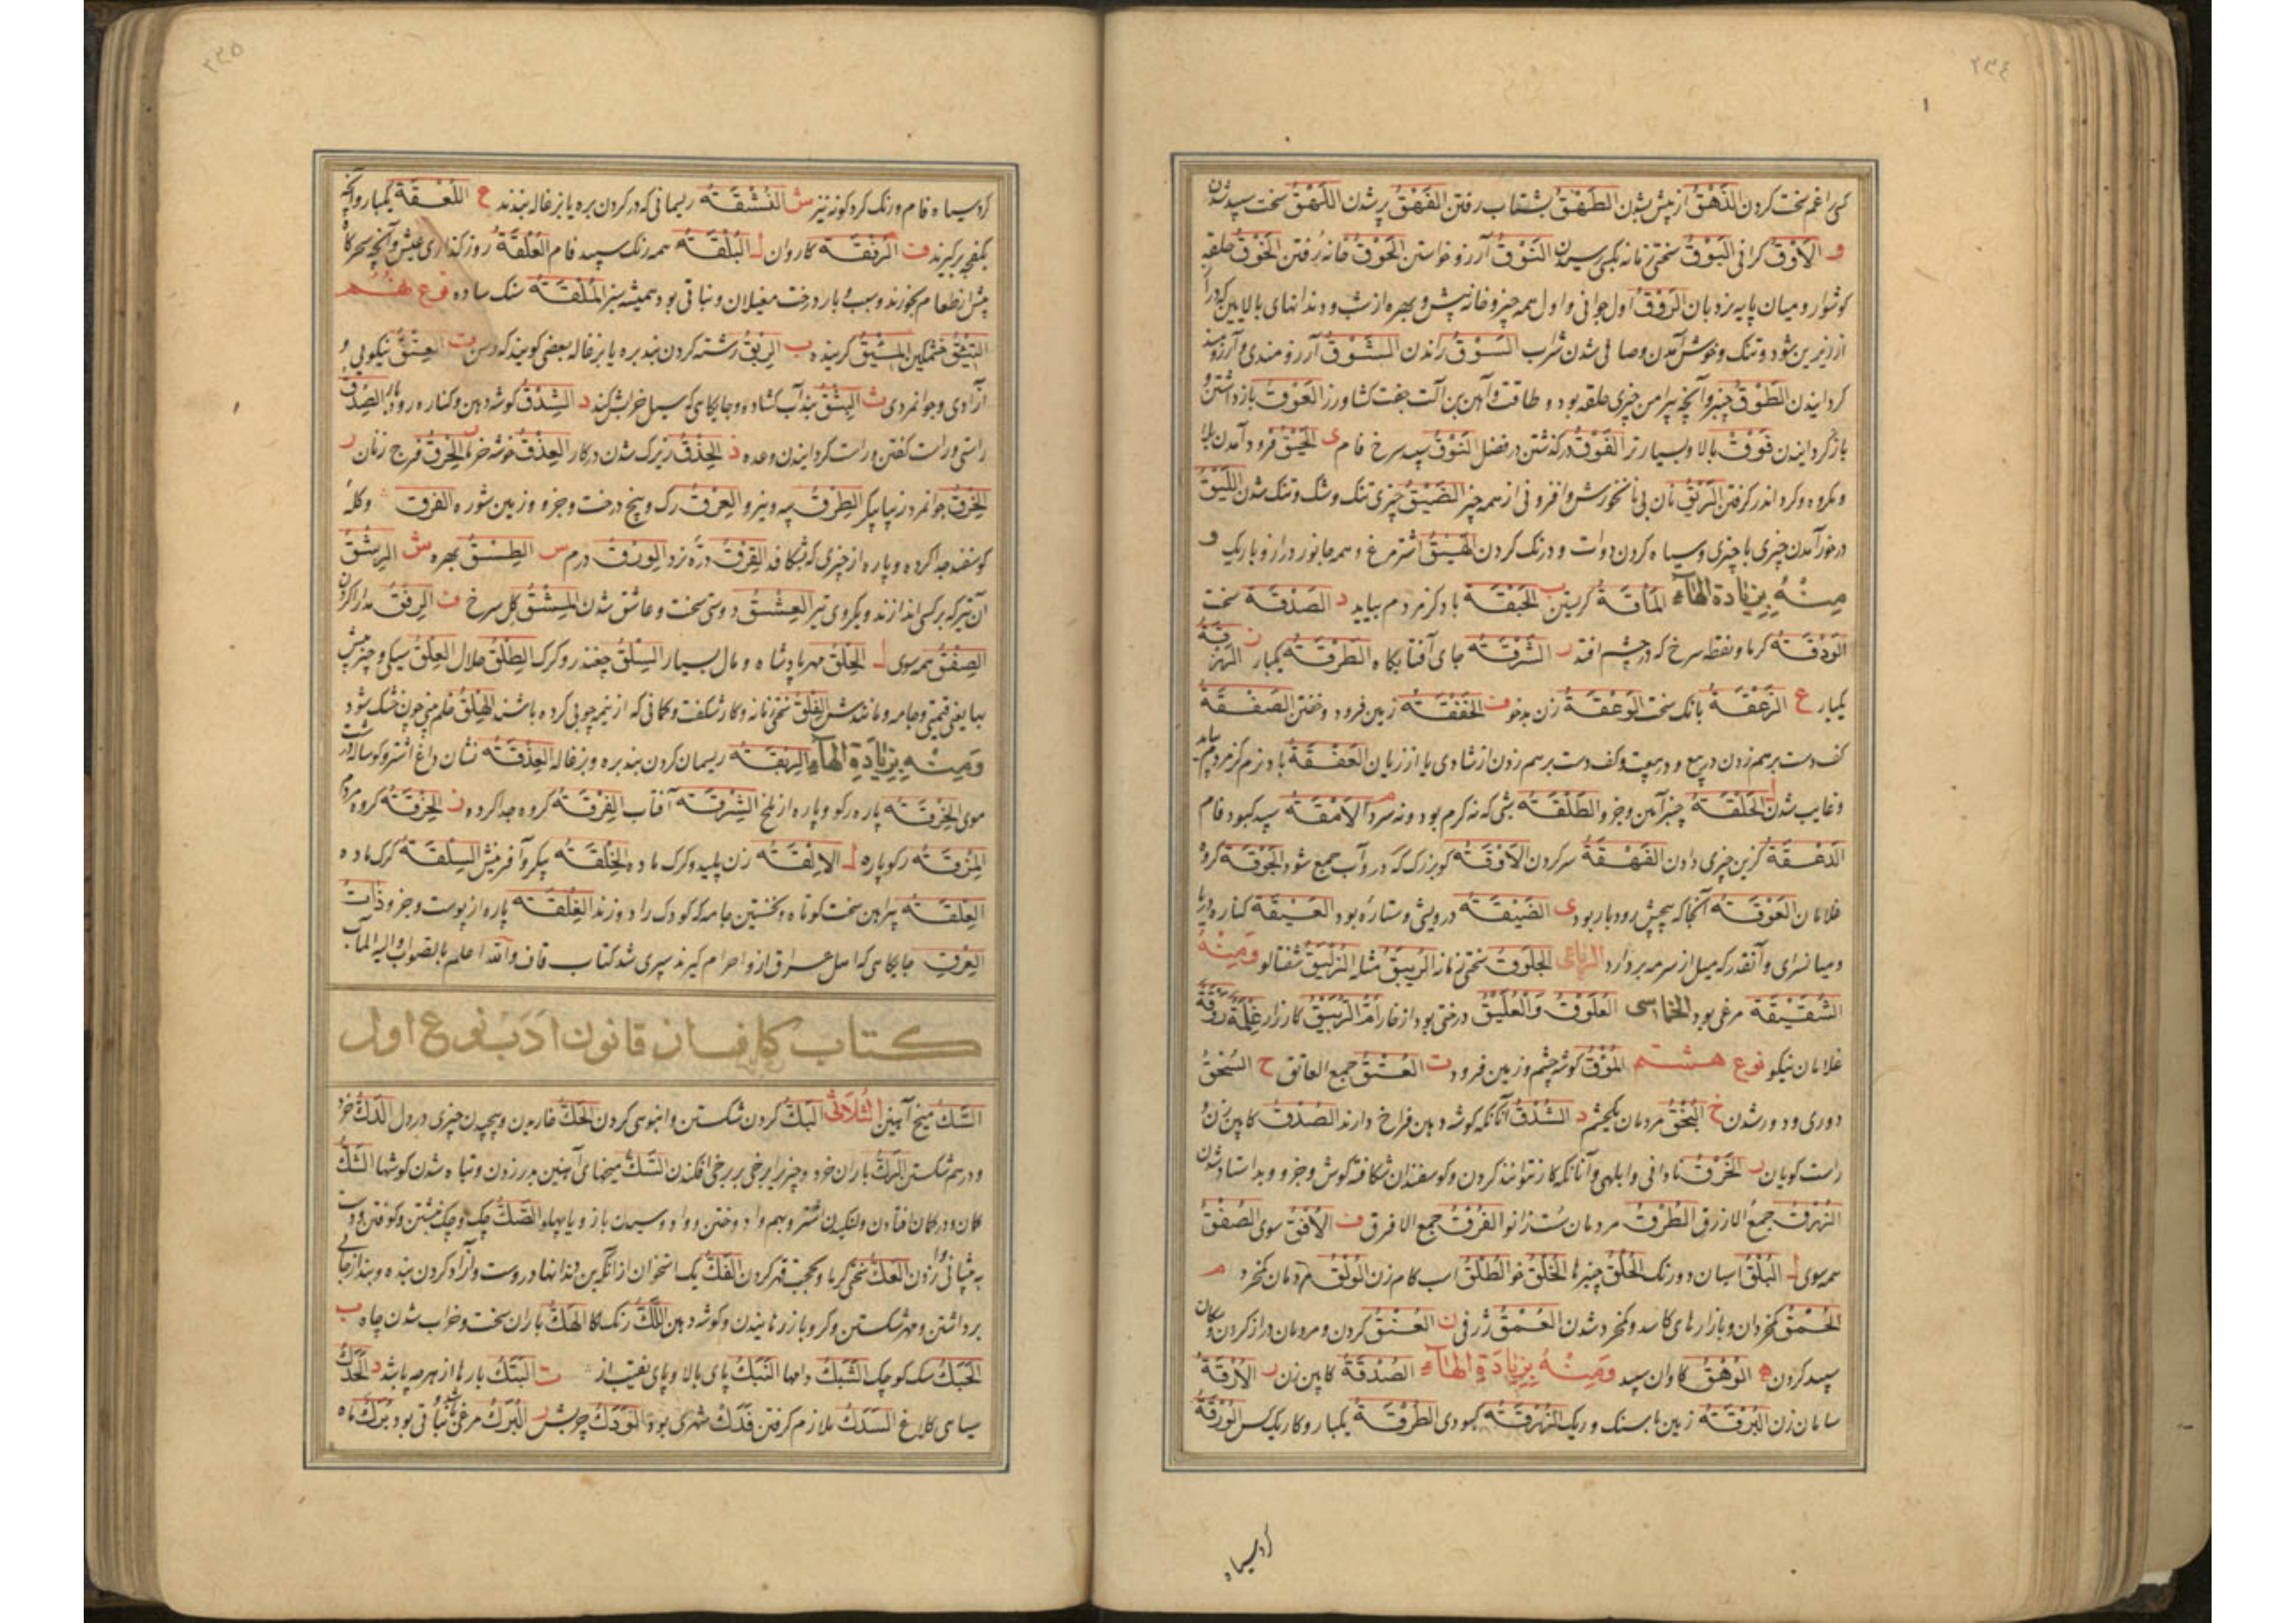 ٢٣٤
کسی را غم سخت کردن الذَّهْقُ از پیش شدن الطَّهْقُ بشتاب رفتن الفَهْقُ پر شدن اللَّهْقُ سخت سپید شدن
و الأَوْقُ کرانی البَوْقُ سختی زمانه بکسی رسیدن التَّوْقُ آرزو خواستن الحَوْقُ خانه رُفتن الخَوْقُ حلقه
کوشوار و میان پایه نردبان الرَّوْقُ اول جوانی و اول همه چیز و خانه پیش و بهره از شب و دندانهای بالایین که دراز
از زیرین شود و تنک و خوش آمدن و صافی شدن شراب السَّوْقُ راندن الشَّوْقُ آرزومندی و آرزومند
کردانیدن الطَّوْقُ چنبر و آنچه پیرامن چیزی حلقه بود و طاقت و آهن بن آلت جفت کشاورز العَوْقُ بازداشتن و
بازکردانیدن فَوْقْ بالا و بسیارتر الفَوْقُ درکذشتن در فضل سپید سرخ فام ی الحَیْقُ فرود آمدن بلا
و مکروه و کرد اندر کرفتن الرَّیْقُ نان بی نانخورش و افزونی از همه چیز الضَّیْقُ چیزی تنک و شک و تنک شدن اللَّیْقُ
درخور آمدن چیزی با چیزی و سیاه کردن دوات و درنک کردن الهَیْقُ اشتر مرغ و همه جانور دراز و باریک و
مِنْهُ بِزِیَادَةِ الهَآءِ المَأْقَةُ کریستن ب الحَبْقَةُ باد کز مردم بیاید د الصَّدْقَةُ سخت
الوَدْقَةُ کرما و نقطه سرخ که در چشم افتد ر الشَّرْقَةُ جای آفتابکاه الطَّرْقَةُ یکبار ز
یکبار ع الزَّعْقَةُ بانک سخت الوَعْقَةُ زن بدخو ف الخَفْقَةُ زمین فرود و خفتن الصَّفْقَةُ
کف دست برهم زدن در بیع و در بیعت و کف دست برهم زدن از شادی یا از زیان العَفْقَةُ باد نرم کز مردم بیاید
و غایب شدن ل الحَلْقَةُ چنبر آهن و جزو الطَّلْقَةُ شبی که نه کرم بود و نه سرد م الأَمْقَةُ سپید کبود فام
الدَّهْقَةُ کزین چیزی دادن الفَهْقَةُ سر کردن الأَوْقَةُ کو بزرک که درو آب جمع شود الجَوْقَةُ کروه
غلامان العَوْقَةُ آنجا که پیچش رودبار بود ی الضَّیْقَةُ درویشی و ستاره بود العَیْقَةُ کناره دریا
و میانسرای و آنقدر که میل از سرمه بردارد الرباعی سختی زمانه مثله شفتالو وَمِنْهُ
الشُّقَیْقَةُ مرغی بود الخماسی العُلَّوْقُ وَالْعُلَّیْقُ درختی بود از خار کارزار
غلامان نیکو نوع هشتم المُؤْقُ کوشه چشم و زمین فرود ت العُتْقُ جمع العاتق ح السُّحْقُ
دوری و دور شدن خ البُخْقُ مردمان یکچشم د الشُّدْقُ آنانکه کوشه دهن فراخ دارند الصُّدْقُ کابین زن و
راست کویان ر الخُرْقُ نادانی و ابلهی و آنانکه کار نتوانند کردن و کوسفندان شکافته کوش و جزو و بد استاد شدن
الزُّرْقُ جمع الازرق الطُّرْقُ مردمان سُست زانو الفُرْقُ جمع الافرق ف الأُفْقُ سوی الصُّفْقُ
همه سوی ل البُلْقُ اسبان دو رنک الحُلْقُ چنبرها الخُلْقُ خو الطُّلْقُ اسب کام زن مردمان کمخرد م
الحُمْقُ کمخردان و بازارهای کاسد و کمخرد شدن العُمْقُ ژرفی ن العُنْقُ کردن و مردمان دراز کردن و سکان
سپید کردن ه الوُهْقُ کاوان سپید وَمِنْهُ بِزِیَادَةِ الهَآءِ الصُّدْقَةُ کابین زن ر الأُرْقَةُ
سامان زن البُرْقَةُ زمین با سنک و ریک الزُّرْقَةُ کبودی الطُّرْقَةُ یکبار و کار یک کس الوُرْقَةُ
کرد سیاه
٢٣٥
کرد سیاه فام و رنک کرد کونه نیز ش النُّشْقَةُ ریسمانی که در کردن بره یا بزغاله بندند ع اللُّعْقَةُ یکبار و آنچه
بکفچه برکیرند ف الرُّفْقَةُ کاروان ل البُلْقَةُ همه رنک سپید فام العُلْقَةُ روزکذاری عیش و آنچه سحرکاه
پیش از طعام بخورند و سبب بار درخت مغیلان و نباتی بود همیشه سبز المُلْقَةُ سنک ساده نوع نهم
التِّئْقُ خشمکین المِئْقُ کرینده ب الرِّبْقُ رشته کردن بند بره یا بزغاله بعضی کویند که رسن ت العِتْقُ نیکویی و
آزادی و جوانمردی ث البِثْقُ بند آب کشاده و جایکاهی که سیل خراب کند د الشِّدْقُ کوشه دهن و کناره رودبار الصِّدْقُ
راستی و راست کفتن و راست کردانیدن وعده ذ الحِذْقُ زیرک شدن در کار العِذْقُ خوشه خرما ر الخِرْقُ فرج زنان
الخِرْقُ جوانمرد زیبا پیکر الطِّرْقُ پیه و نیرو العِرْقُ رک و بیخ درخت و جزو و زمین شوره الفِرْقُ وکله
کوسفند جدا کرده و پاره از چیزی که بشکافد القِرْقُ دزد الوِرْقُ درم س الطِّسْقُ بهره ش الرِّشْقُ
آن تیر که بر کسی اندازند و یکروی تیر العِشْقُ دوستی سخت و عاشق شدن المِشْقُ کل سرخ ف الرِّفْقُ مدارا کردن
الصِّفْقُ همه سوی ل الحِلْقُ مهر پادشاه و مال بسیار السِّلْقُ چغندر و کرک الطِّلْقُ حلال العِلْقُ سیکی و چیز بیش
بها یعنی قیمتی و جامه و مانندش الفِلْقُ سختی زمانه و کار شکفت و کمانی که از نیمه چوبی کرده باشند الهِلْقُ خلم بینی چون خشک شود
وَمِنْهُ بِزِیَادَةِ الهَآءِ الرِّبْقَةُ ریسمان کردن بند بره و بزغاله العِذْقَةُ نشان داغ اشتر و کوساله
موی الخِرْقَةُ پاره رکو و پاره از ملخ الشِّرْقَةُ آفتاب الفِرْقَةُ کروه جدا کرده ز الحِزْقَةُ کروه مردم
المِزْقَةُ رکو پاره ل الإِلْقَةُ زن پلید و کرک ماده الخِلْقَةُ پیکر و آفرینش السِّلْقَةُ کرک ماده
العِلْقَةُ پیراهن سخت کوتاه و نخستین جامه که کودک را دوزند الفِلْقَةُ پاره از پوست و جزو ذَاتُ
العِرْقِ جایکاهی که اهل عراق ازو احرام کیرند سپری شد کتاب قاف والله اعلم بالصواب والیه المآب
کتاب کاف از قانون ادب نوع اول
السَّكُّ میخ آهنین الثُّلَاثِی البَكُّ کردن شکستن و انبوهی کردن الحَكُّ خاریدن و پیچیدن چیزی در دل الدَّكُّ خرد
و درهم شکستن الرَّكُّ باران خرد و چیز را برخی بر برخی افکندن السَّكُّ میخهای آهنین در زدن و تباه شدن کوشها الشَّكُّ
کمان و در کمان افتادن و لنکیدن اشتر و بهم وادوختن و وادوسیدن بازو با پهلو الصَّكُّ چک و چک نبشتن و کوفتن و دست
به پیشانی وازدن العَكُّ سختی کرما و بحجت قهر کردن الفَكُّ یک استخوان از آنکه بن دندانها دروست و آزاد کردن بنده و بند از جای
برداشتن و مهر شکستن و کرو باز رهانیدن و کوشه دهن اللَّكُّ رنک لکا الهَكُّ باران سخت و خراب شدن چاه ب
الحَبَكُ سک کوچک الشَّبَكُ دامها النَّبَكُ پای بالا و پای نشیب از ت البَتَكُ بارها از هر چه باشد د الحَدَكُ
سیاهی کلاغ السَّدَكُ ملازم کرفتن فَدَكُ شهری بود الوَدَكُ چربش ر البَرَكُ مرغی باشد و نباتی بود بَرَكُ ماه